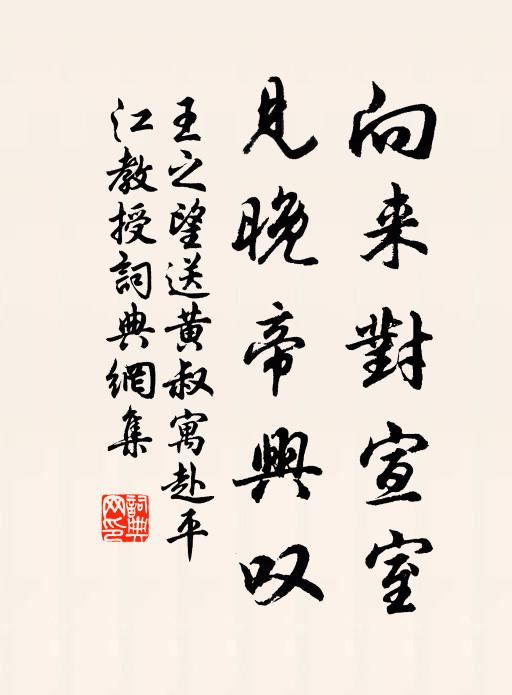 向来對宣室
見晚帝興叹
王之望送黄叔寓赴平
江教授詞典網集
詞典
网印